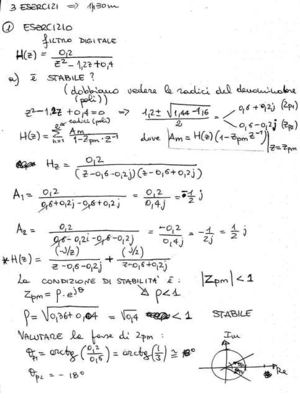 3 ESERCIZI => 1h30m
① ESERCIZIO
FILTRO DIGITALE
H(z) = 0,2 / z² - 1,2z + 0,4
a) È STABILE?
(dobbiamo vedere le radici del denominatore (poli))
z² - 1,2z + 0,4 = 0 => 1,2 ± √1,44 - 1,6 / 2 = 0,6 + 0,2j (P1) 0,6 - 0,2j (P2)
H(z) = Σ Am / 1 - Zpm · z⁻¹ dove Am = H(z)(1 - Zpm z⁻¹)| z = Zpm
Hz = 0,2 / (z - 0,6 - 0,2j)(z - 0,6 + 0,2j)
A1 = 0,2 / 0,6 + 0,2j - 0,6 + 0,2j = 0,2 / 0,4j = -1/2 j
A2 = 0,2 / 0,6 - 0,2j - 0,6 - 0,2j = -0,2 / 0,4j = -1/2j = 1/2 j
* H(z) = (-J/2) / z - 0,6 - 0,2j + (J/2) / z - 0,6 + 0,2j
LA CONDIZIONE DI STABILITA' È : |Zpm| < 1
Zpm = ρ · e^jθ ρ < 1
ρ = √0,36 + 0,04 = √0,4 < 1 STABILE
VALUTARE la fase di Zpm : Im
θp1 = arctg (0,2 / 0,6) = arctg (1/3) ≅ 18°
Re
θp2 = - 18°